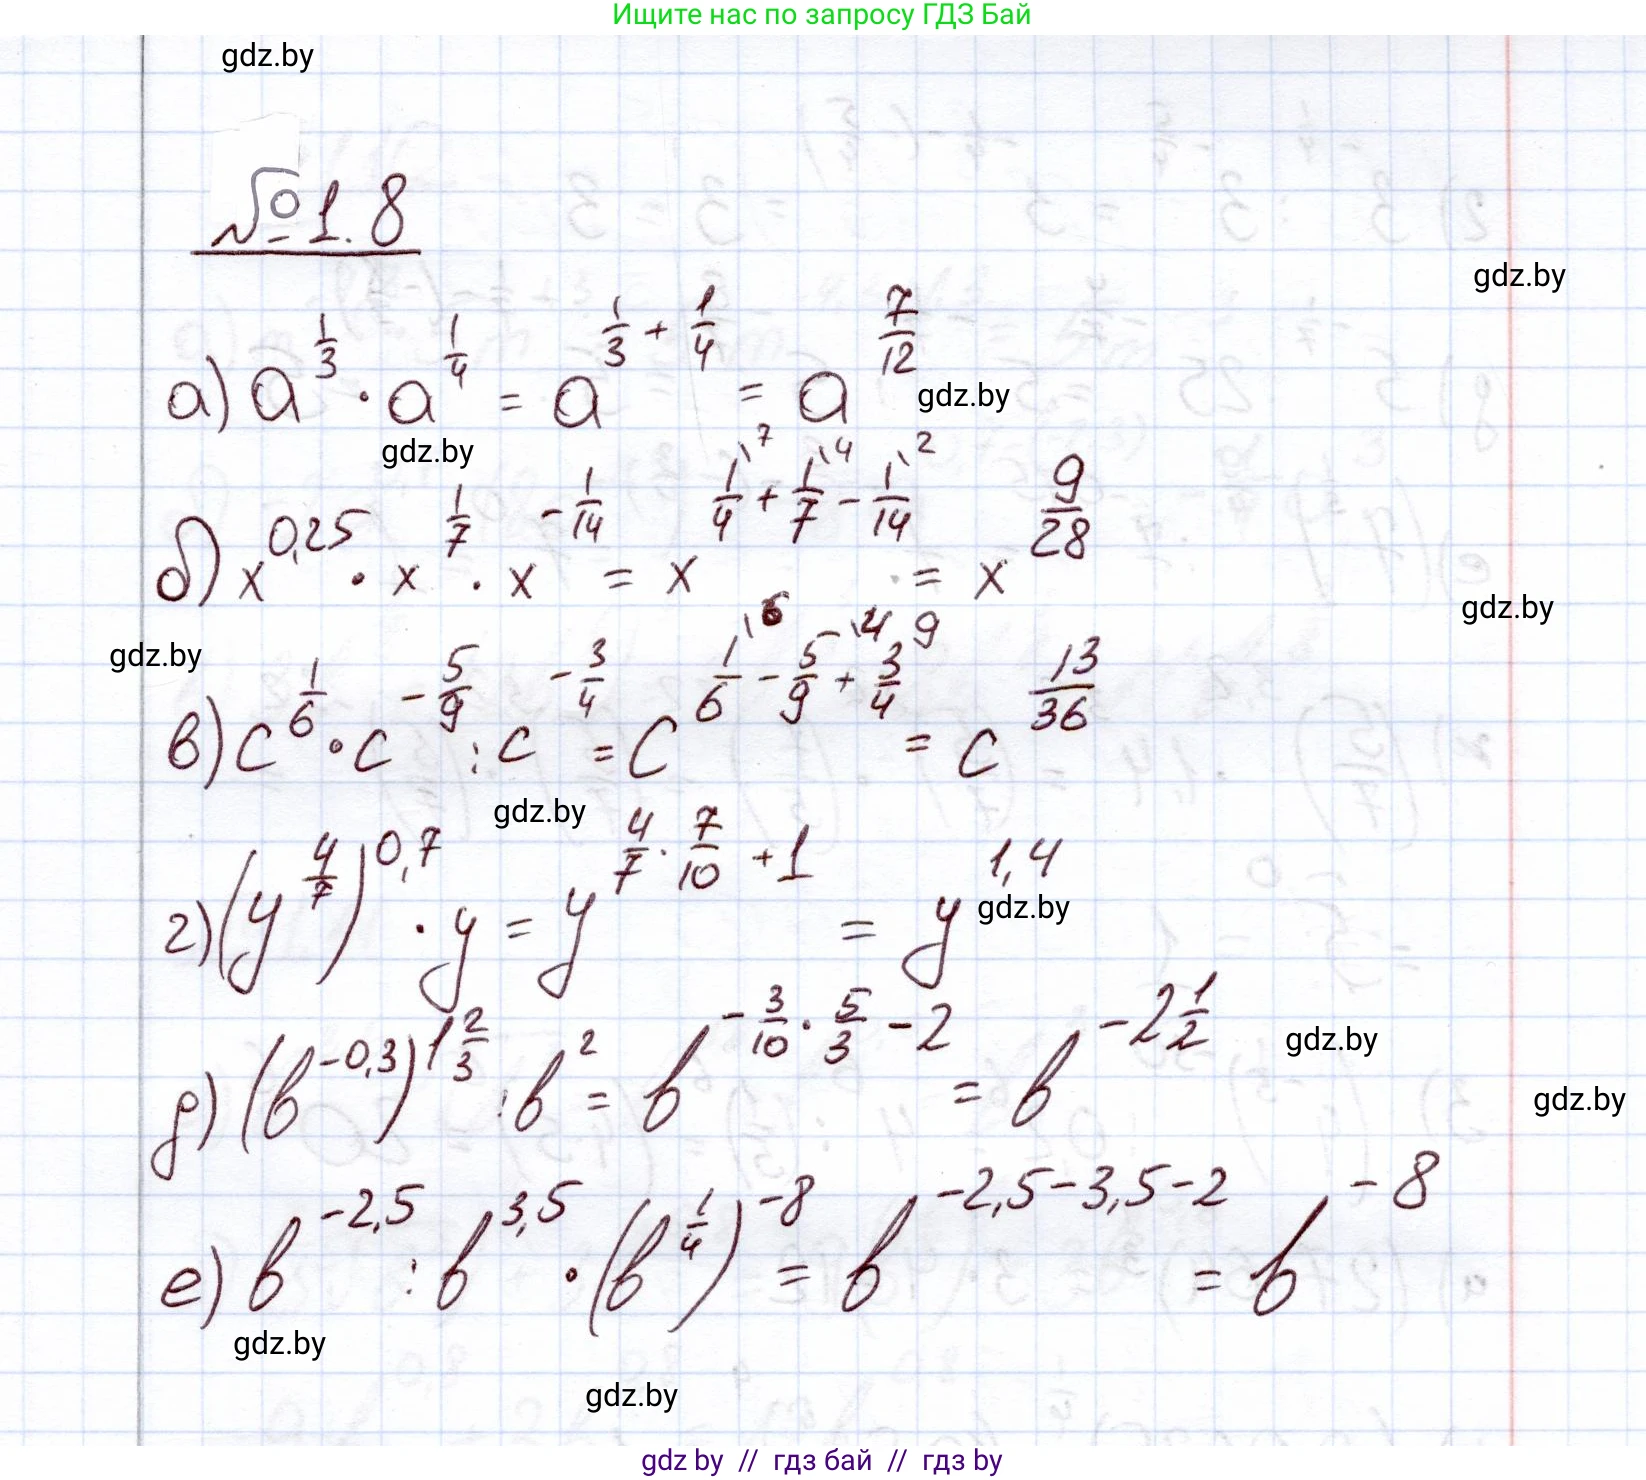 Ищите нас по запросу ГДЗ Бай
gdz.by
№ 1.8
gdz.by
а) a^{1/3} · a^{1/4} = a^{1/3 + 1/4} = a^{7/12}
gdz.by
gdz.by
б) x^{0,25} · x^{1/7} · x^{-1/14} = x^{1/4\7 + 1/7\4 - 1/14\2} = x^{9/28}
gdz.by
gdz.by
в) c^{1/6} · c^{-5/9} : c^{-3/4} = c^{1/6\6 - 5/9\4 + 3/4\9} = c^{13/36}
gdz.by
г) (y^{4/7})^{0,7} · y = y^{4/7 · 7/10 + 1} = y^{1,4}
gdz.by
gdz.by
д) (b^{-0,3})^{1 2/3} : b^2 = b^{-3/10 · 5/3 - 2} = b^{-2 1/2}
gdz.by
е) b^{-2,5} : b^{3,5} · (b^{1/4})^{-8} = b^{-2,5-3,5-2} = b^{-8}
gdz.by
gdz.by
gdz by // гдз бай // gdz by